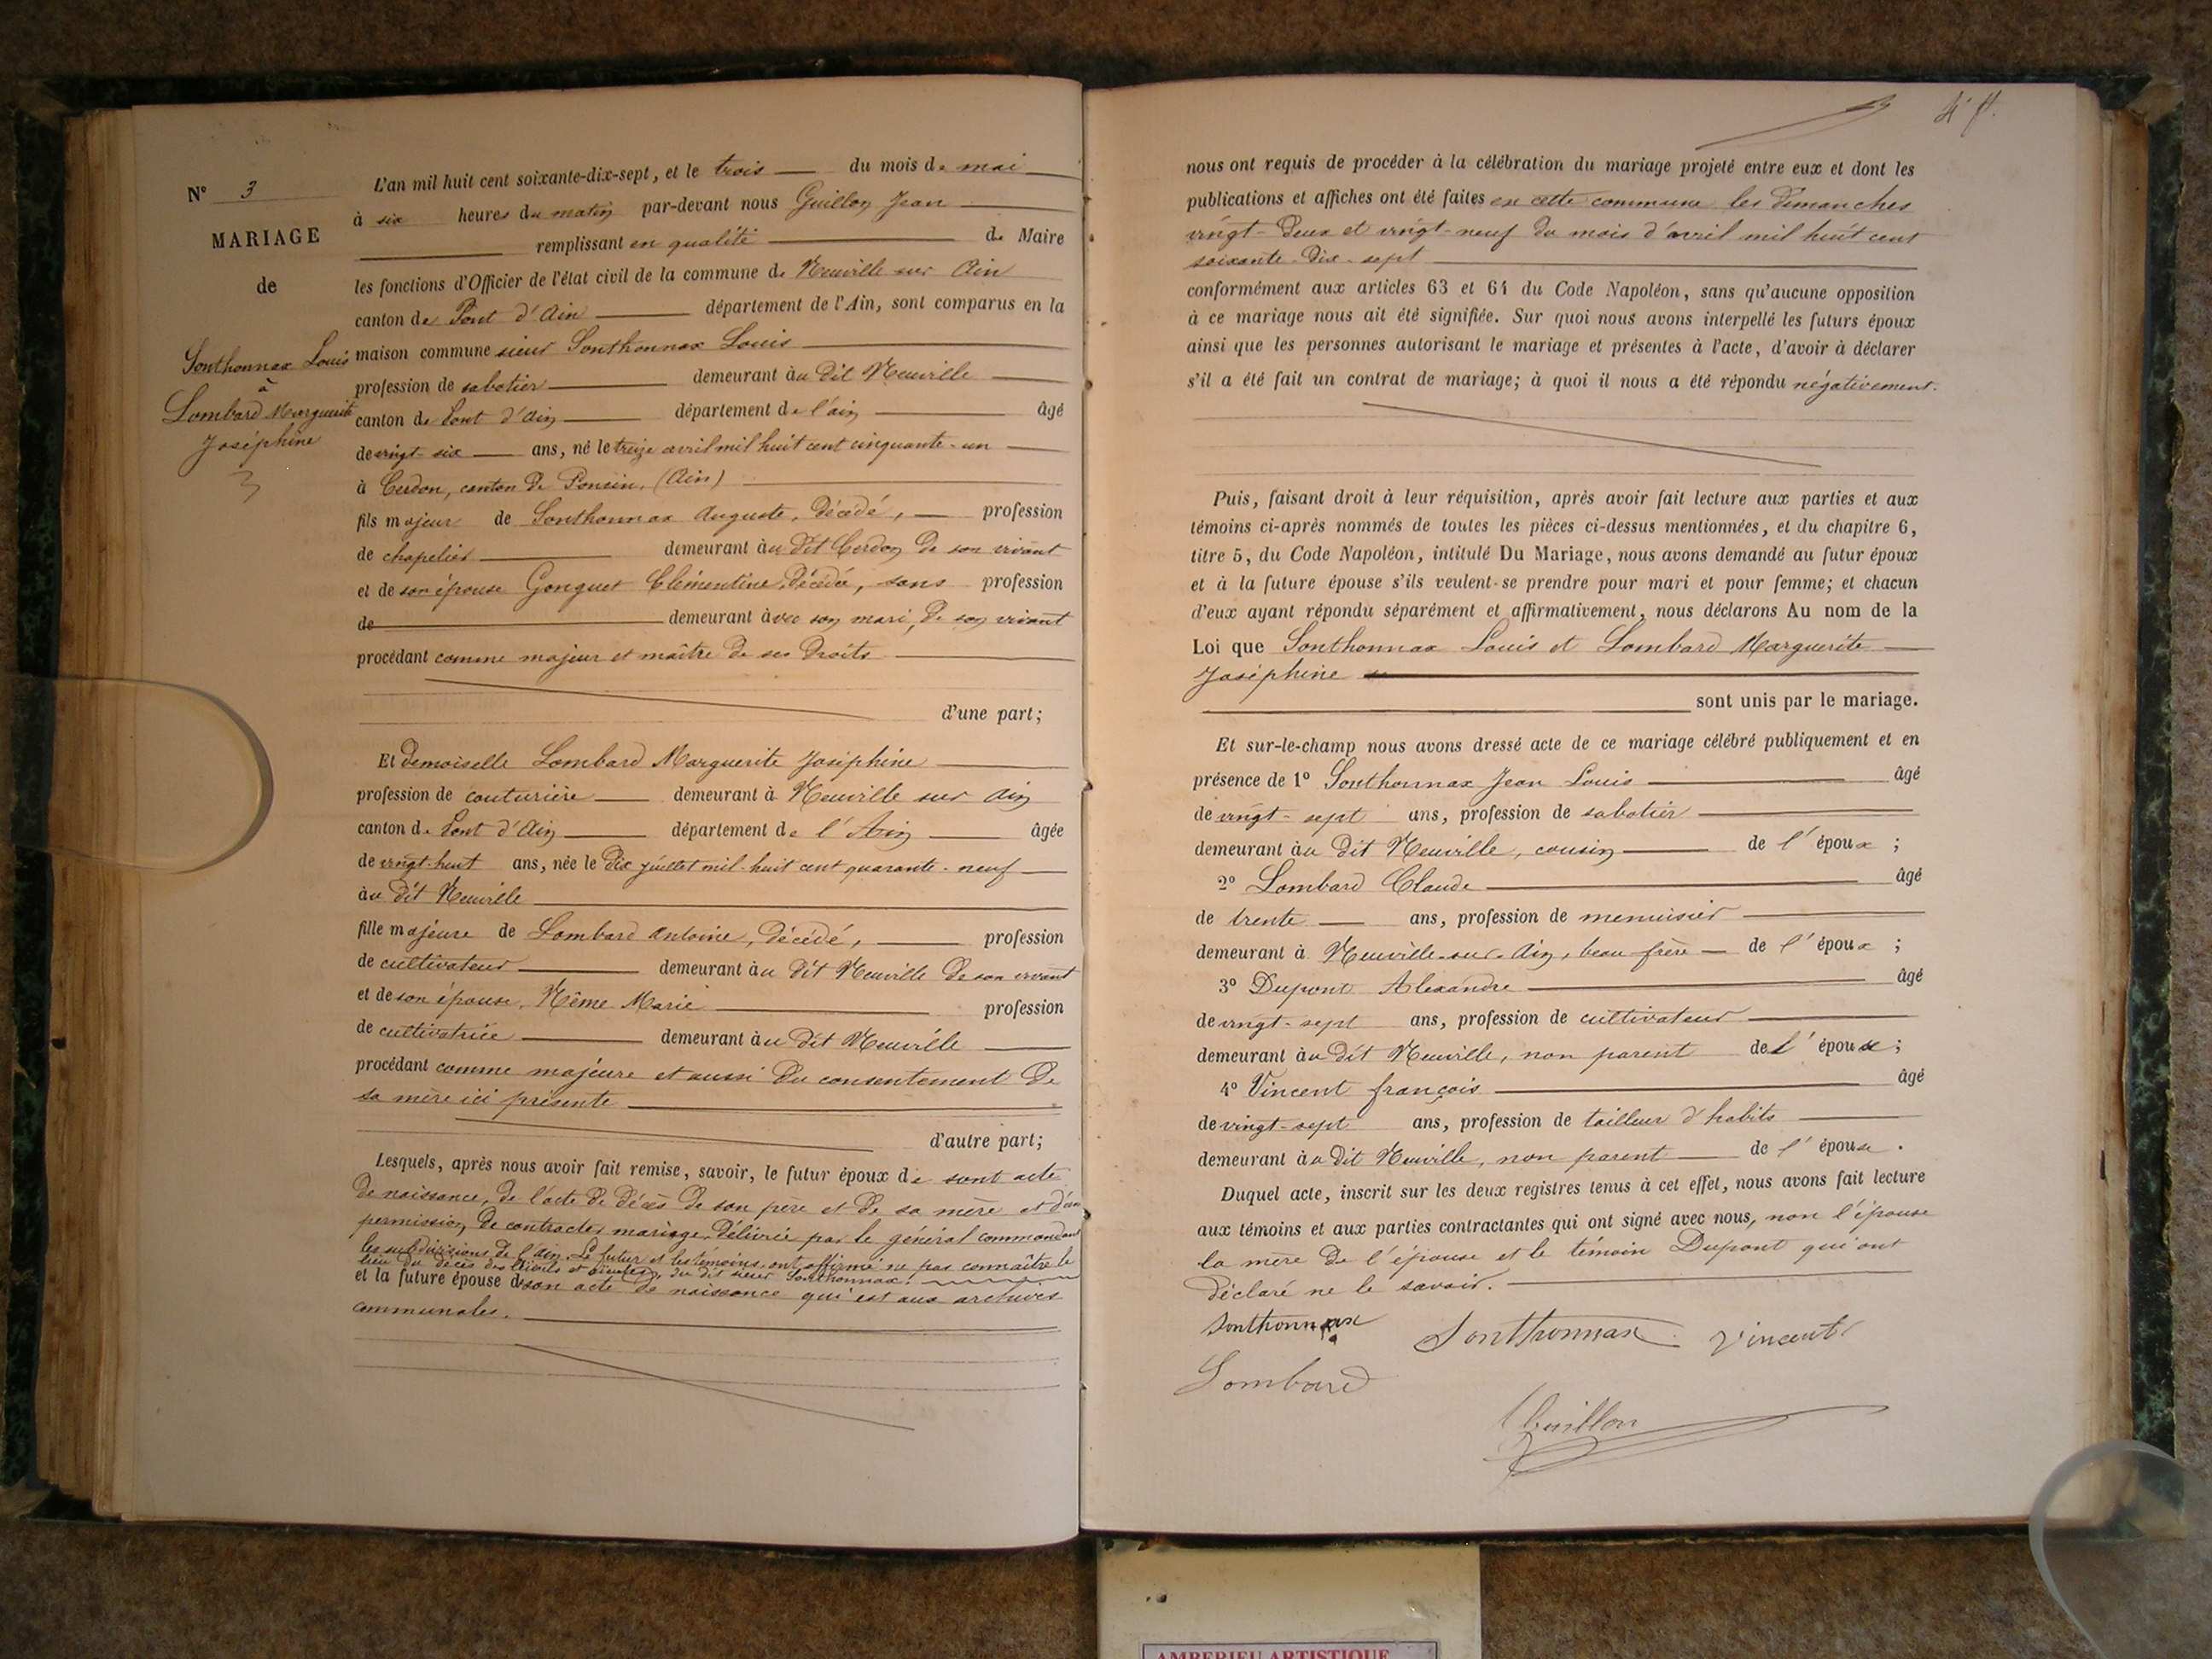 N° 3
MARIAGE
de
Sonthonnax Louis
à
Lombard Marguerite
Joséphine
L'an mil huit cent soixante-dix-sept, et le trois du mois de mai
à six heures du matin par-devant nous Guillon Jean
remplissant en qualité de Maire
les fonctions d'Officier de l'état civil de la commune de Neuville sur Ain
canton de Pont d'Ain département de l'Ain, sont comparus en la
maison commune sieur Sonthonnax Louis
profession de sabotier demeurant à au dit Neuville
canton de Pont d'Ain département de l'ain âgé
de vingt-six ans, né le treize avril mil huit cent cinquante-un
à Cerdon, canton de Poncin, (Ain)
fils majeur de Sonthonnax Auguste, décédé, profession
de chapelier demeurant à au dit Cerdon de son vivant
et de son épouse Gonguet Clémentine, décédée, sans profession
de demeurant avec son mari, de son vivant
procédant comme majeur et maître de ses droits
d'une part;
Et demoiselle Lombard Marguerite Joséphine
profession de couturière demeurant à Neuville sur Ain
canton de Pont d'Ain département de l'Ain âgée
de vingt-huit ans, née le dix juillet mil-huit cent quarante-neuf
à au dit Neuville
fille majeure de Lombard Antoine, décédé, profession
de cultivateur demeurant à au dit Neuville de son vivant
et de son épouse, Nême Marie profession
de cultivatrice demeurant à au dit Neuville
procédant comme majeure et aussi du consentement de
sa mère ici présente
d'autre part;
Lesquels, après nous avoir fait remise, savoir, le futur époux de sont acte
de naissance, de l'acte de décès de son père et de sa mère et d'une
permission de contracter mariage, délivrée par le général commandant
les subdivisions de l'Ain. Le futur et les témoins ont affirmé ne pas connaître le
lieu du décès des aïeuls et aïeules du dit sieur Sonthonnax.
et la future épouse de son acte de naissance qui est aux archives
communales.
nous ont requis de procéder à la célébration du mariage projeté entre eux et dont les
publications et affiches ont été faites en cette commune les dimanches
vingt-deux et vingt-neuf du mois d'avril mil huit cent
soixante-dix-sept
conformément aux articles 63 et 64 du Code Napoléon, sans qu'aucune opposition
à ce mariage nous ait été signifiée. Sur quoi nous avons interpellé les futurs époux
ainsi que les personnes autorisant le mariage et présentes à l'acte, d'avoir à déclarer
s'il a été fait un contrat de mariage; à quoi il nous a été répondu négativement.
Puis, faisant droit à leur réquisition, après avoir fait lecture aux parties et aux
témoins ci-après nommés de toutes les pièces ci-dessus mentionnées, et du chapitre 6,
titre 5, du Code Napoléon, intitulé Du Mariage, nous avons demandé au futur époux
et à la future épouse s'ils veulent se prendre pour mari et pour femme; et chacun
d'eux ayant répondu séparément et affirmativement, nous déclarons Au nom de la
Loi que Sonthonnax Louis et Lombard Marguerite
Joséphine
sont unis par le mariage.
Et sur-le-champ nous avons dressé acte de ce mariage célébré publiquement et en
présence de 1° Sonthonnax Jean Louis âgé
de vingt-sept ans, profession de sabotier
demeurant à au dit Neuville, cousin de l'époux;
2° Lombard Claude âgé
de trente ans, profession de menuisier
demeurant à Neuville-sur-Ain, beau frère de l'époux;
3° Dupont Alexandre âgé
de vingt-sept ans, profession de cultivateur
demeurant à au dit Neuville, non parent de l'époux;
4° Vincent françois âgé
de vingt-sept ans, profession de tailleur d'habits
demeurant à au dit Neuville, non parent de l'épouse.
Duquel acte, inscrit sur les deux registres tenus à cet effet, nous avons fait lecture
aux témoins et aux parties contractantes qui ont signé avec nous, non l'épouse
la mère de l'épouse et le témoin Dupont qui ont
déclaré ne le savoir.
Sonthonnax Sonthonnax Vincent
Lombard
Guillon
AMBERIEU ARTISTIQUE